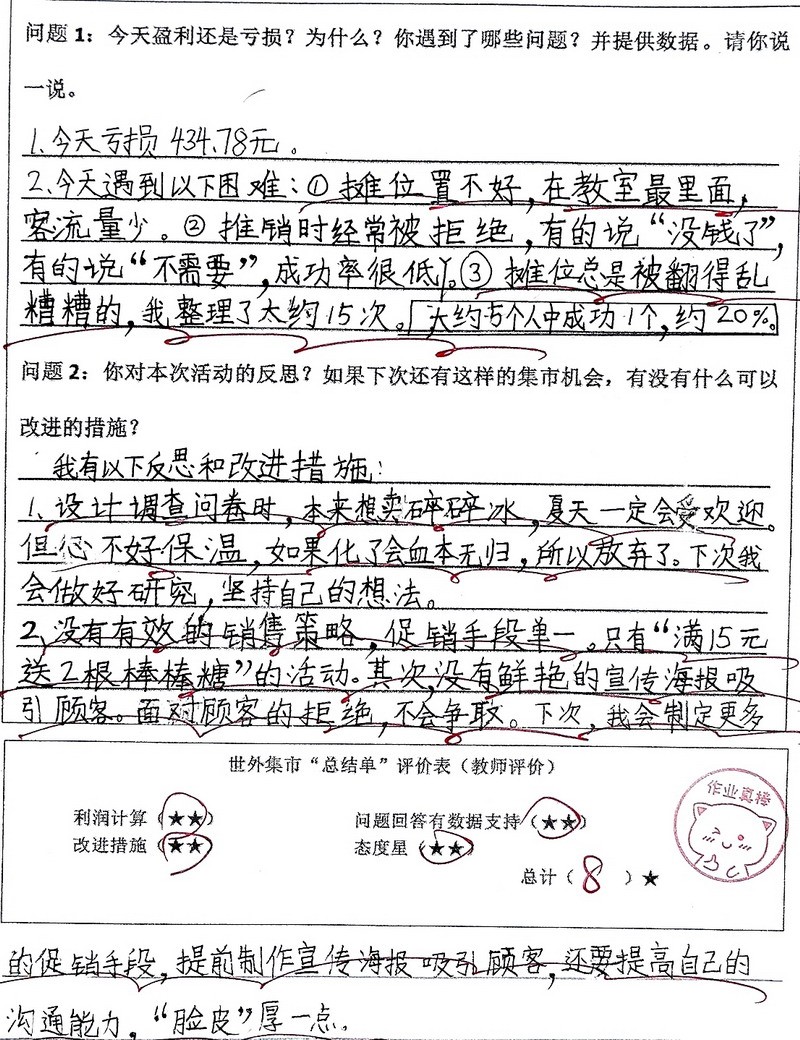 问题 1：今天盈利还是亏损？为什么？你遇到了哪些问题？并提供数据。请你说
一说。
1.今天亏损 434.78元。
2.今天遇到以下困难：① 摊位置不好，在教室最里面，
客流量少。② 推销时经常被拒绝，有的说“没钱了”，
有的说“不需要”，成功率很低。③ 摊位总是被翻得乱
糟糟的，我整理了大约15次。大约5个人中成功1个，约20%。
问题 2：你对本次活动的反思？如果下次还有这样的集市机会，有没有什么可以
改进的措施？
我有以下反思和改进措施：
1.设计调查问卷时，本来想卖碎碎冰，夏天一定会受欢迎。
但不好保温，如果化了会血本无归，所以放弃了。下次我
会做好研究，坚持自己的想法。
2.没有有效的销售策略，促销手段单一。只有“满15元
送2根棒棒糖”的活动。其次，没有鲜艳的宣传海报吸
引顾客。面对顾客的拒绝，不会争取。下次，我会制定更多
世外集市“总结单”评价表（教师评价）
利润计算（★★） 问题回答有数据支持（★★）
改进措施（★★） 态度星（★★）
总计（8）★
作业真棒
的促销手段，提前制作宣传海报吸引顾客，还要提高自己的
沟通能力，“脸皮”厚一点。